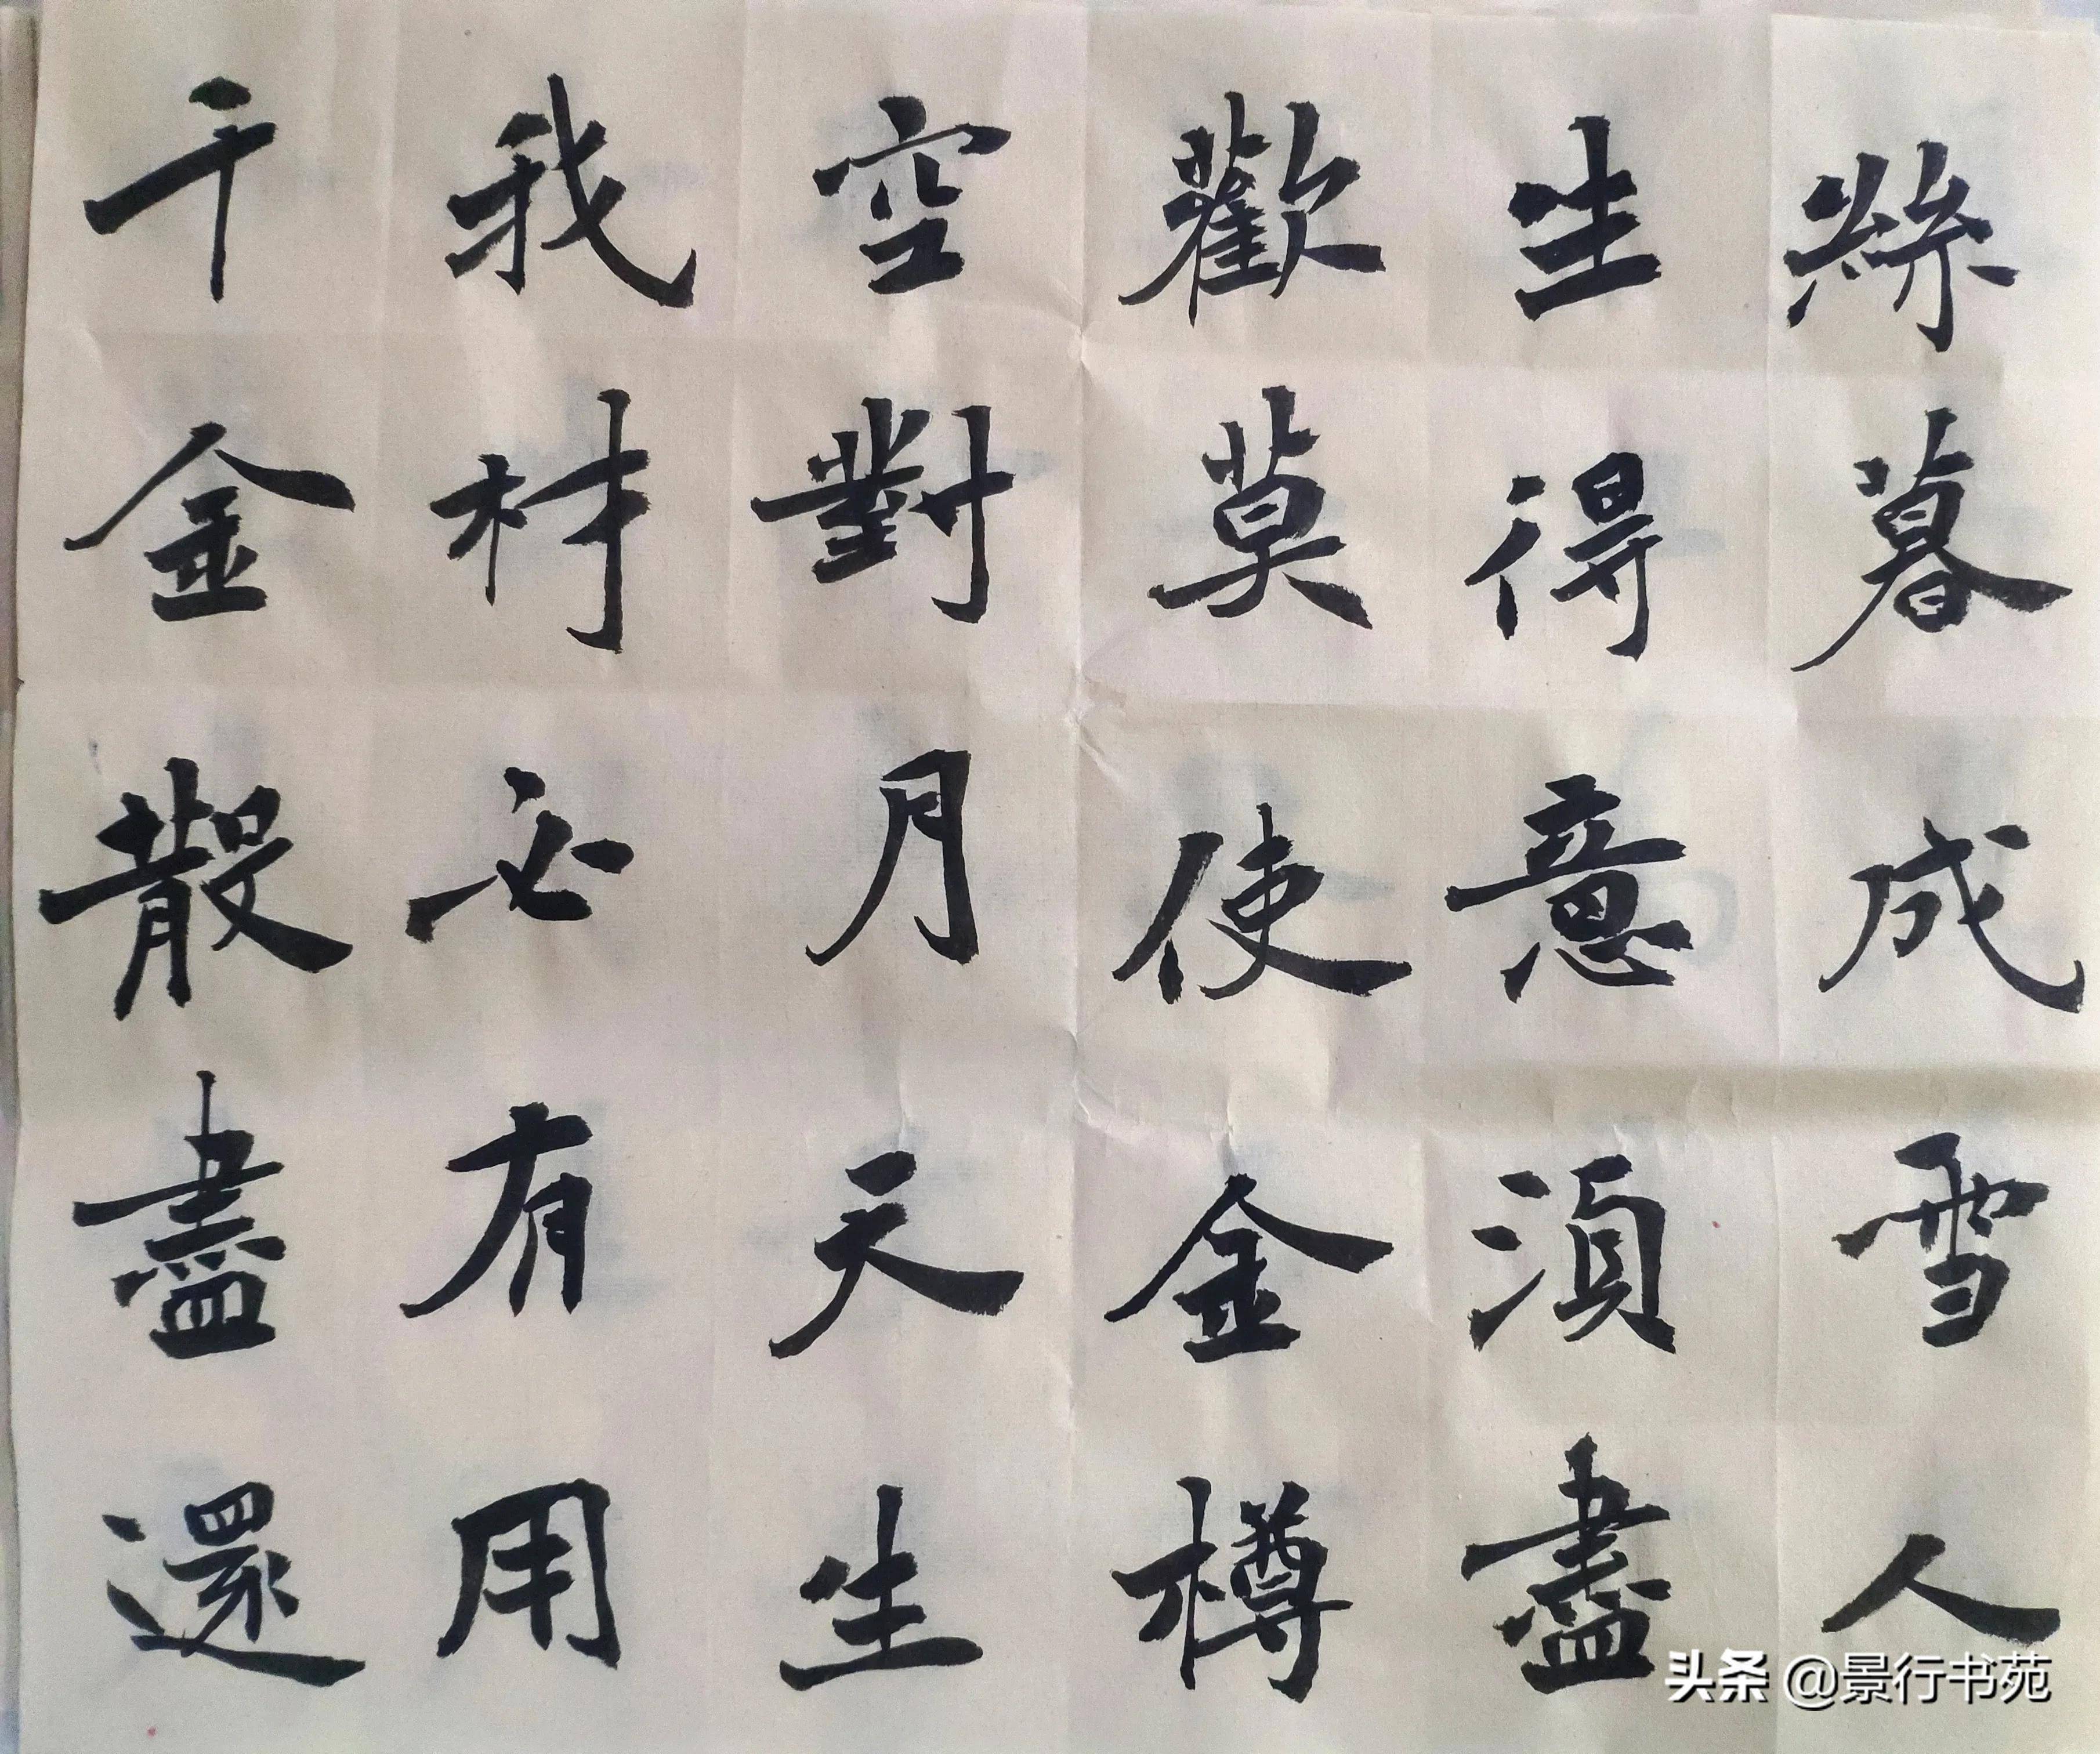 絲暮成雪人
生得意湏盡
歡莫使金樽
空對月天生
我材必有用
千金散盡還
头条 @景行书苑